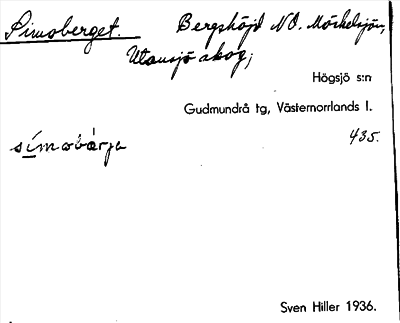 Simoberget. Bergshöjd NO. Mörkelsjön,
Utansjö skog;
Högsjö s:n
Gudmundrå tg, Västernorrlands l.
435.
símobärja
Sven Hiller 1936.